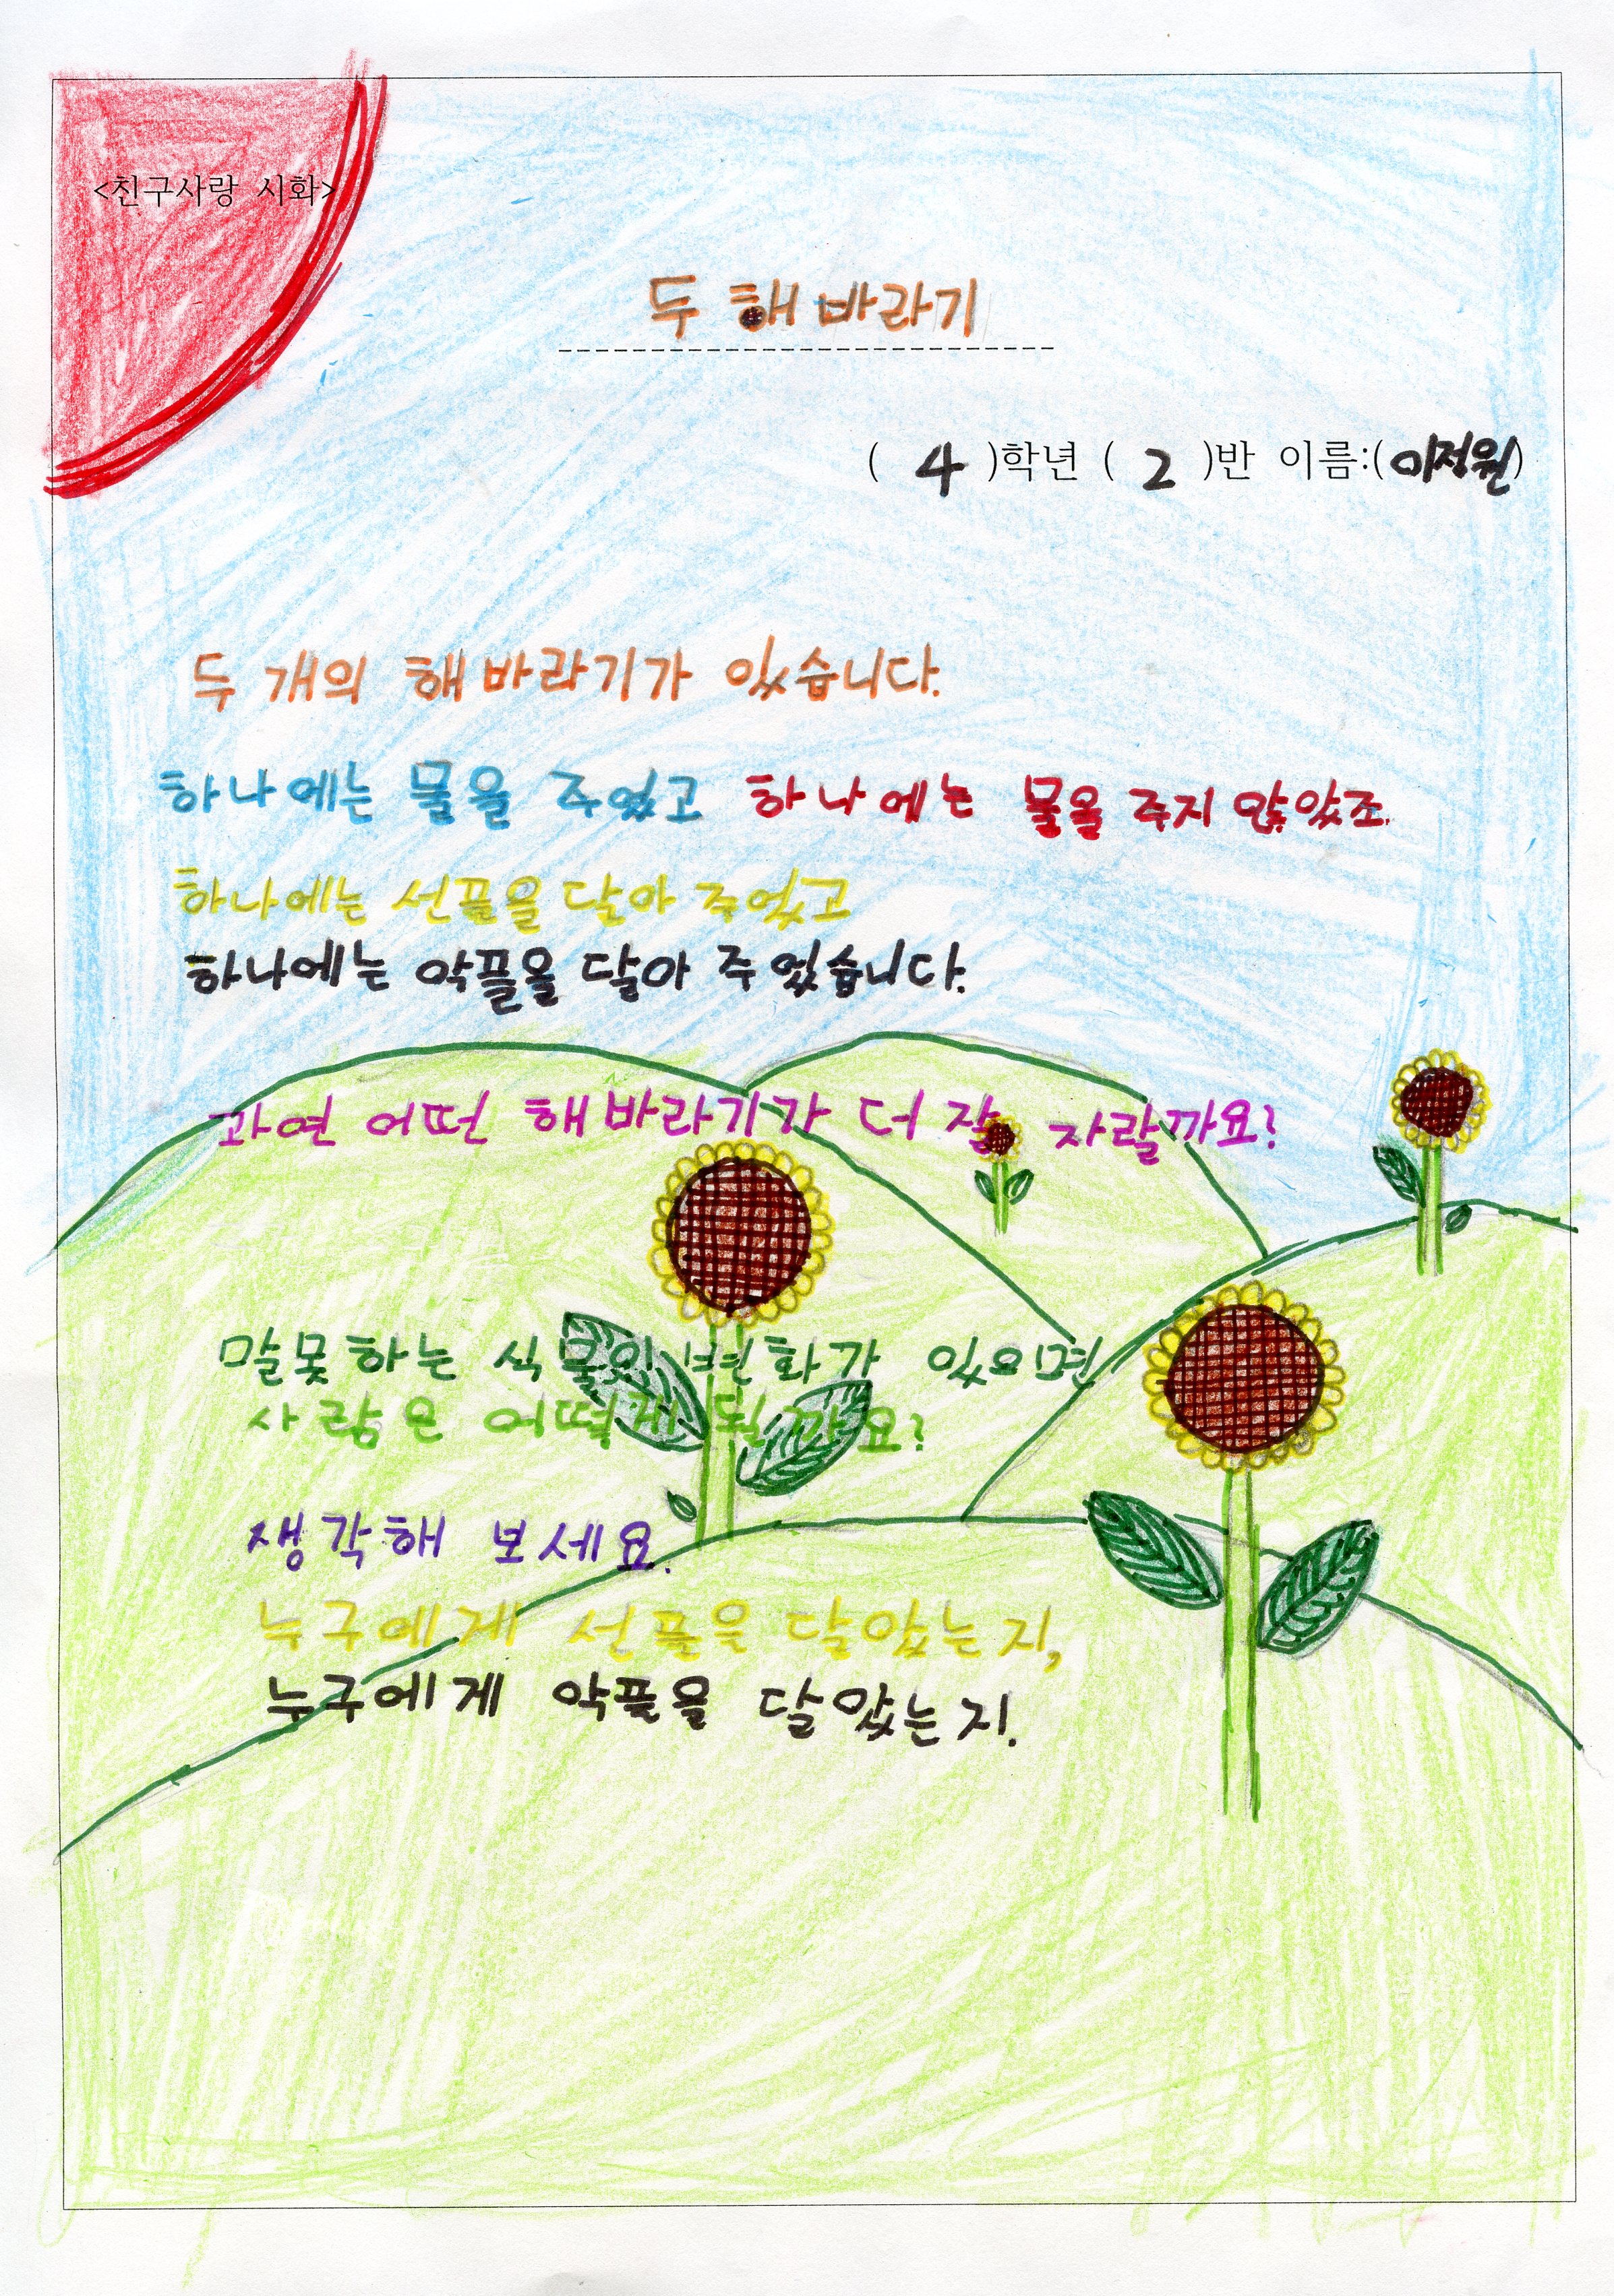 <친구사랑 시화>
두 해바라기
( 4 )학년 ( 2 )반 이름:(이정원)
두 개의 해바라기가 있습니다.
하나에는 물을 주었고 하나에는 물을 주지 않았죠.
하나에는 선플을 달아 주었고
하나에는 악플을 달아 주었습니다.
과연 어떤 해바라기가 더 잘 자랄까요?
말못하는 식물의 변화가 있으면
사람은 어떻게 될까요?
생각해 보세요.
누구에게 선플을 달았는지,
누구에게 악플을 달았는지.